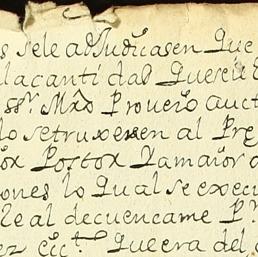 s se le adJudicasen Que
la cantidad Que
ssr. Mro Proueio auct
lo se truxesen al Pre
or Postor Y amaior
ones lo qual se execu
Real decuencame Pr
ez ect. Que era del